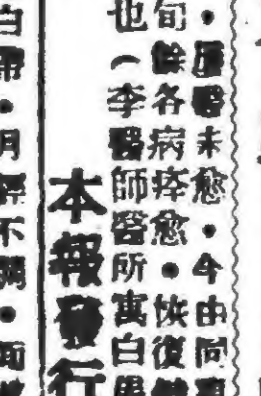 醫未愈·今由同
旬餘各病痊愈·恢復
也（李醫師醫所寓白
本報發行
白帶·月經不調·面